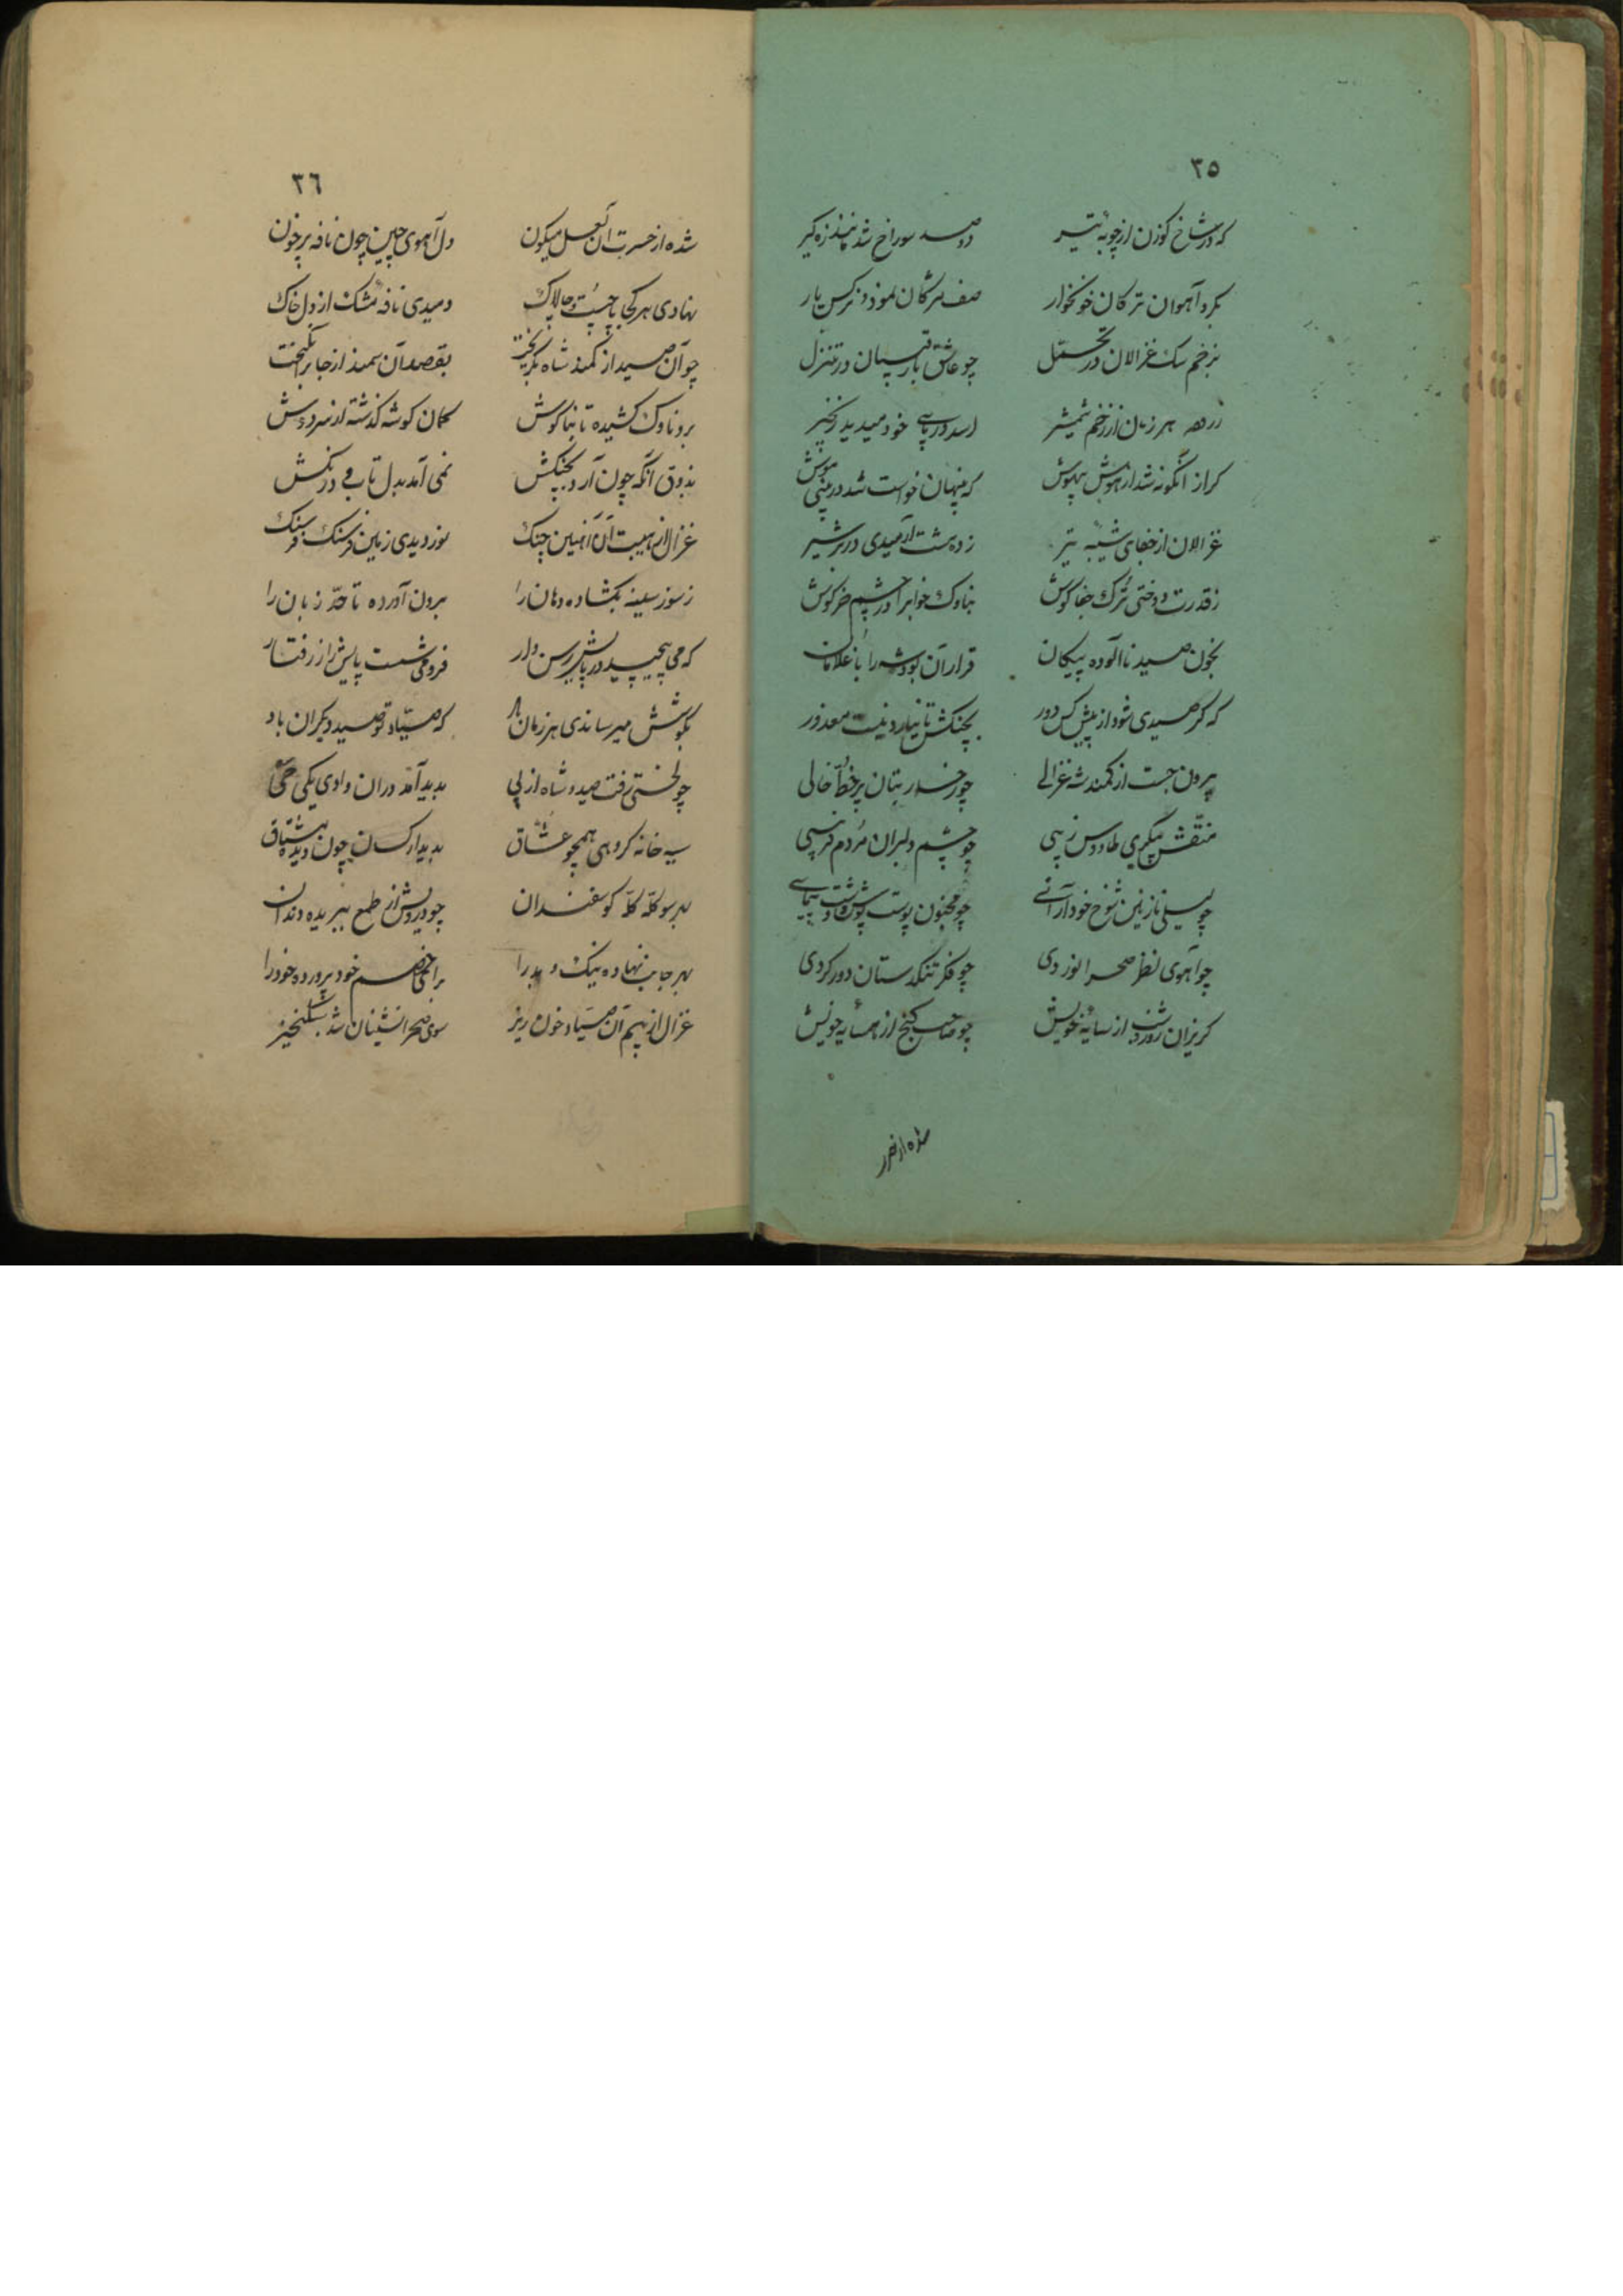 ۳۵
که در شاخ کوزن از چوبهٔ تیر دو صد سوراخ شد مانند زه کیر
بکرد آهوان ترکان خونخوار صف مژکان نمود و نرکس یار
بزخم سک غزالان در تحمّل چو عاشق با رقیبان در تنزل
زره هر زمان از زخم شمشیر اسد در پای خود میدید زنجیر
کراز آنکونه شد از هوش بیهوش که پنهان خواست شد در بینی موش
غزالان از جفای شیبهٔ تیر ز دهشت آرمیدی در بر شیر
ز قدرت دوختی ترک جفا کوش بناوک خواب را در چشم خرکوش
بخون صید نا آلوده پیکان قرار آن بود شه را با غلامان
که کر صیدی شود از پیش کس دور بچنکش تا نیارد نیست معذور
برون جست از کمند شه غزالی چو رخسار بتان پر خطّ و خالی
منقّش پیکری طاوس زیبی چو چشم دلبران مردم فریبی
چو لیلی نازنین شوخ خود آرائی چو مجنون پوست پوش و دشت پیمایی
چو آهوی نظر صحرا نوردی چو فکر تنکدستان دور کردی
کریزان روز و شب از سایهٔ خویش چو صاحب کنج از همسایه خویش
شده از حسرت
۳۶
شده از حسرت آن لعل میکون دل آهوی چین چون نافه پر خون
نهادی هر کجا پا چست و چالاک دمیدی نافهٔ مشک از دل خاک
چو آن صید از کمند شاه بکریخت بقصد آن سمند از جا برانکیخت
برو ناوک کشیده تا بناکوش کمان کوشه کذشته از سر دوش
بذوق آنکه چون آرد بچنکش نمی آمد بدل تاب درنکش
غزال از هیبت آن آهنین چنک نوردیدی زمین فرسنک فرسنک
ز سوز سینه بکشاده دهان را برون آورده تا حدّ زبان را
که می پیچید در پایش رسن وار فرو می شست پایش را ز رفتار
بکوشش میرساندی هر زمان باد که صیّاد تو صید دیکران باد
چو لختی رفت صید و شاه از پی بدید آمد در ان وادی یکی حی
سیه خانه کروهی همچو عشّاق بدیدار کسان چون دیده مشتاق
بهر سو کلّه کلّه کوسفندان چو درویش از طمع ببریده دندان
بهر جانب نهاده نیک و بد را برای خصم خود پرورده خود را
غزال از بیم آن صیّاد خون ریز سوی صحرا نشینان شد سبکخیز